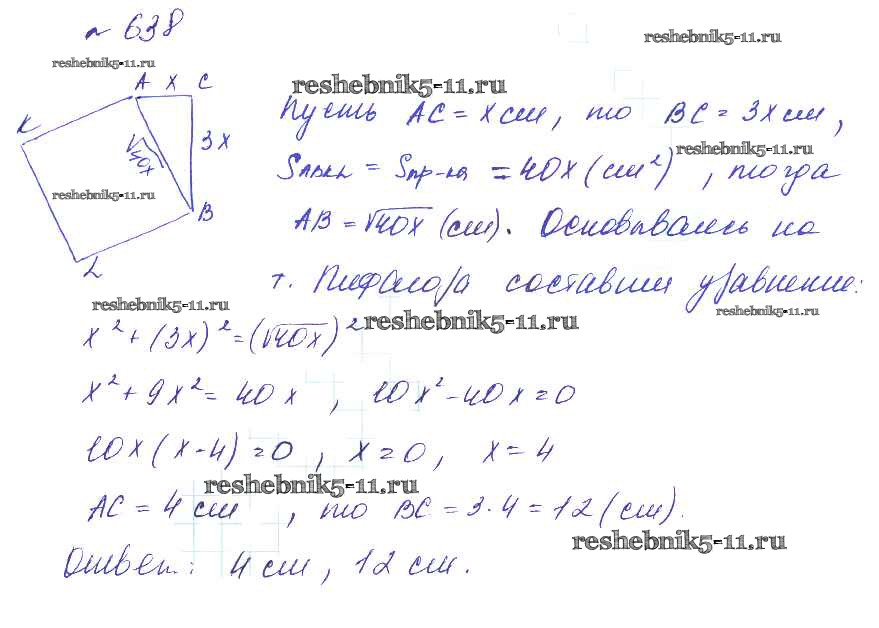 № 638
reshebnik5-11.ru
reshebnik5-11.ru
A x C
reshebnik5-11.ru
Пусть AC = x см, то BC = 3x см,
K
3x
√40x
reshebnik5-11.ru
SАВКL = Sпр-ка = 40x (см²), тогда
reshebnik5-11.ru
B
AB = √40x (см). Основываясь на
L
т. Пифагора составим уравнение:
reshebnik5-11.ru
reshebnik5-11.ru
reshebnik5-11.ru
x² + (3x)² = (√40x)²
x² + 9x² = 40x, 10x² - 40x = 0
10x(x - 4) = 0, x = 0, x = 4
reshebnik5-11.ru
AC = 4 см, то BC = 3·4 = 12 (см).
reshebnik5-11.ru
Ответ: 4 см, 12 см.